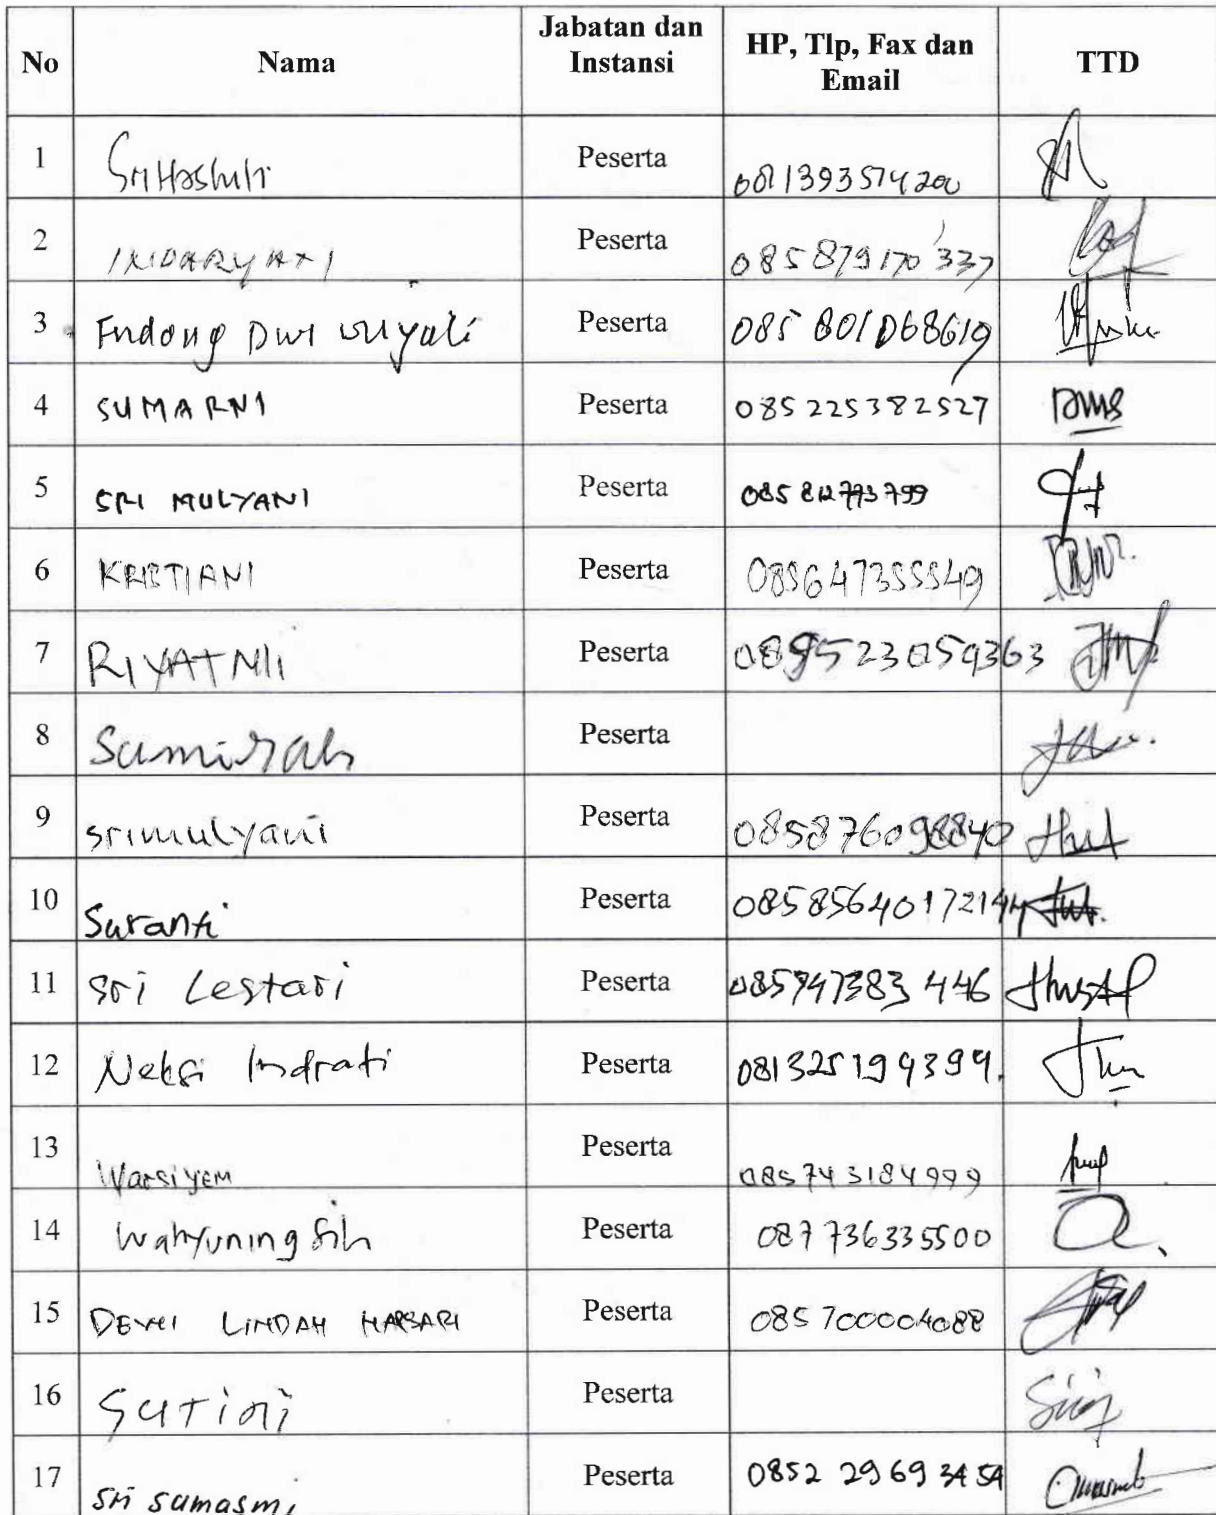 No Nama Jabatan dan Instansi HP, Tlp, Fax dan Email TTD
1 Sri Hastuti Peserta
2 INDARYATI Peserta 085879170337
3 Endang Dwi Peserta 085 801068619
4 SUMARNI Peserta 085 225382527
5 SRI MULYANI Peserta 085 812793799
6 KRISTIANI Peserta 085647355549
7 RIYATNI Peserta 089523059363
8 Samirah Peserta
9 srimulyani Peserta 085876098840
10 Suranti Peserta 08585640172144
11 Sri Lestari Peserta 085747383 446
12 Neksi Indrati Peserta 081325 199399.
13 Warsiyem Peserta 085743184999
14 Wahyuning Sih Peserta 087736335500
15 DEWI LINDAH HAPSARI Peserta 085700004088
16 Sutini Peserta
17 Sri sumasmi Peserta 0852 2969 3454